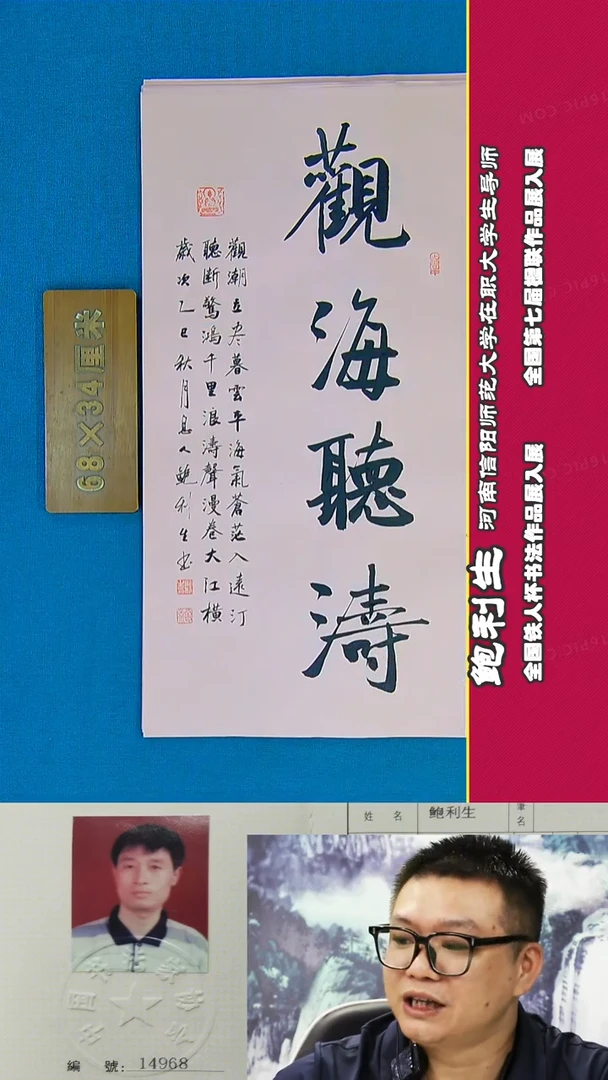 觀海聽濤
觀潮立尽暮雲平海氣蒼茫入遠汀
聽斷驚鴻千里浪濤聲漫卷大江橫
歲次乙巳秋月
鮑利生书
68×34厘米
河南信阳师范大学在职大学生导师
全国第七届楹联作品展入展
鲍利生
全国铁人杯书法作品展入展
姓 名
鲍利生
筆名
編 號:14968